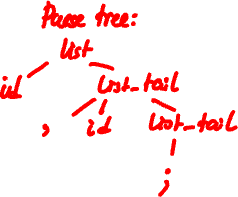 Parse tree:
list
id list_tail
, id list_tail
;